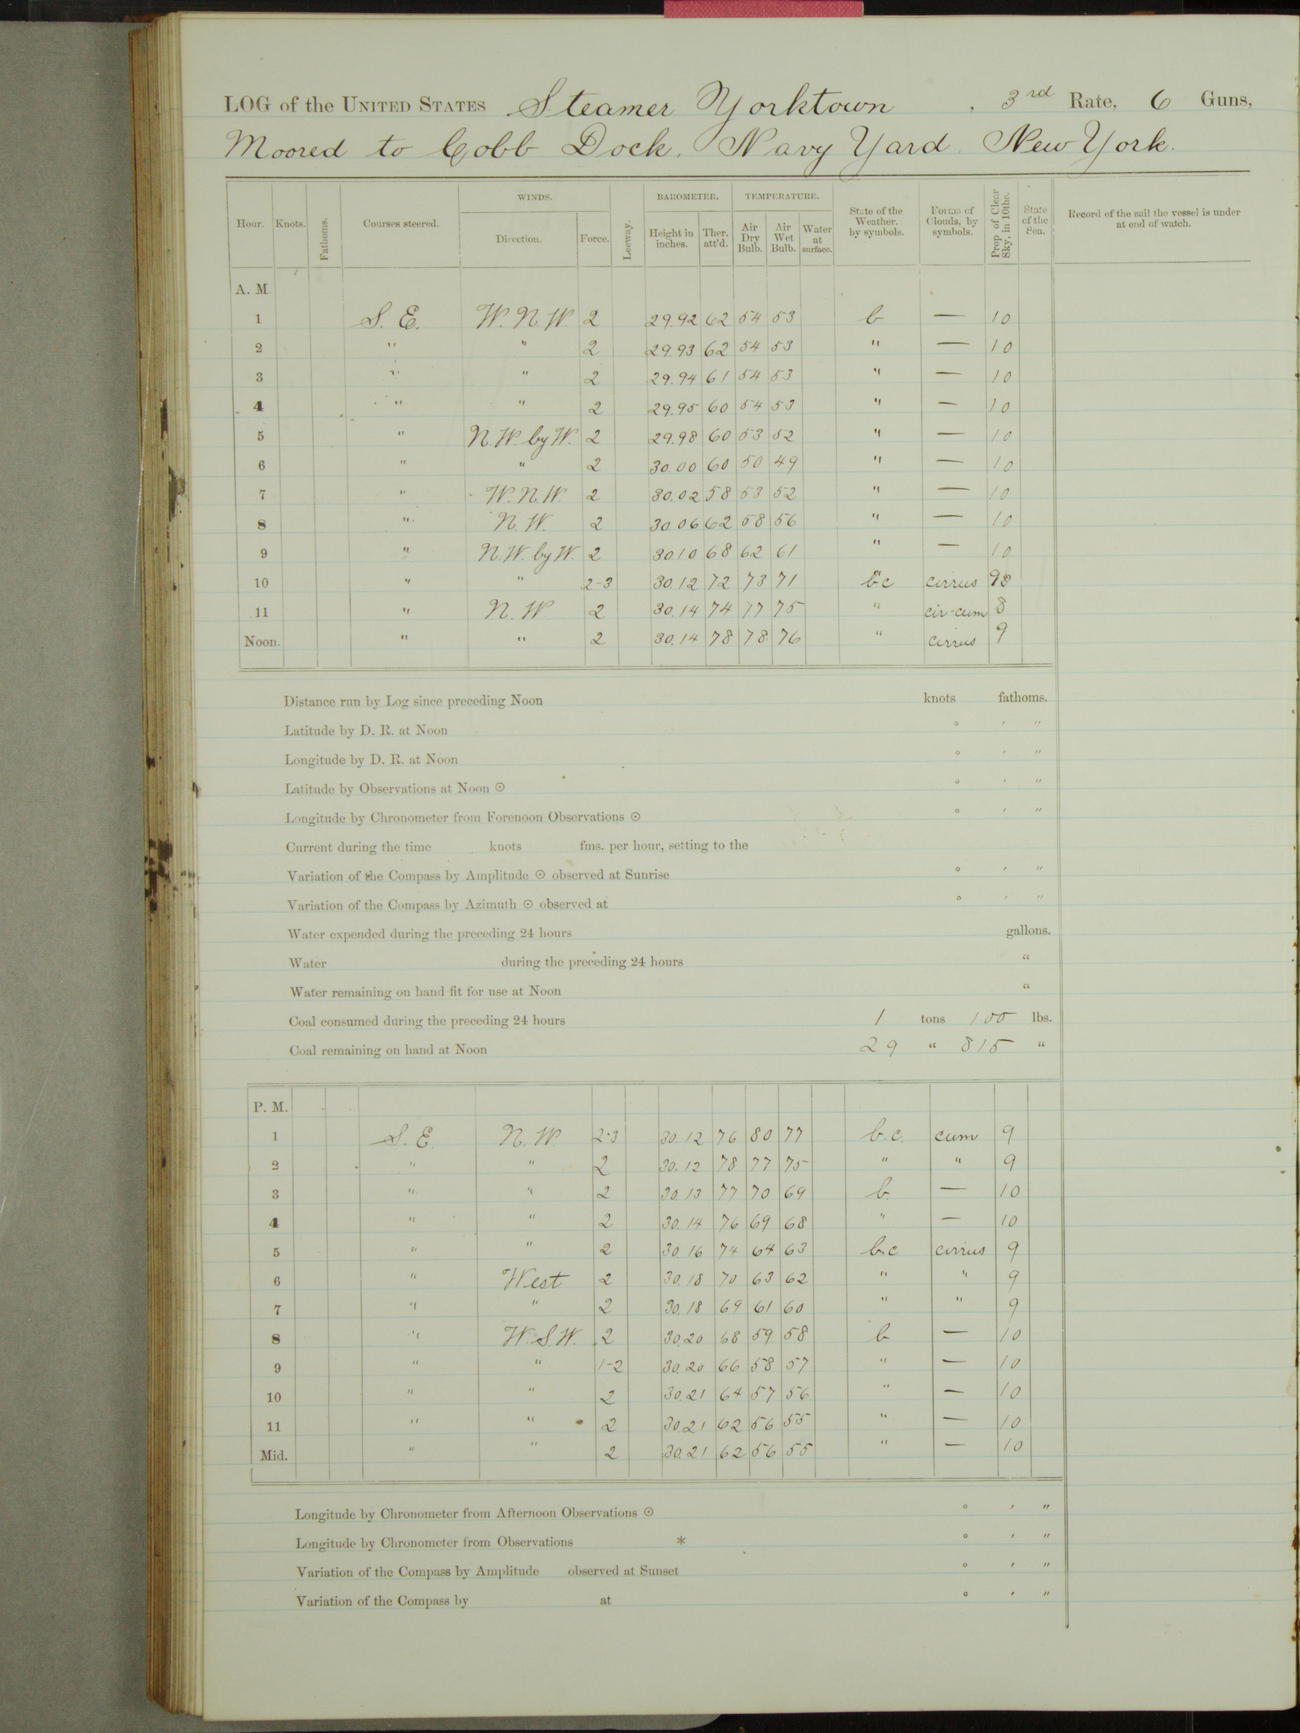 LOG of the UNITED STATES Steamer Yorktown, 3rd Rate, 6 Guns,
Moored to Cobb Dock. Navy Yard New York.
Hour. Knots. Fathoms. Courses steered. WINDS. Direction. Force. Leeway. BAROMETER. Height in inches. Ther. att'd. TEMPERATURE. Air Dry Bulb. Air Wet Bulb. Water at surface. State of the Weather, by symbols. Forms of Clouds, by symbols. Prop of Clear Sky, in 10ths. State of the Sea. Record of the sail the vessel is under at end of watch.
A. M.
1 S. E. W. N. W. 2 29.92 62 54 53 b — 10
2 " " 2 29.93 62 54 53 " — 10
3 " " 2 29.94 61 54 53 " — 10
4 " " 2 29.95 60 54 53 " — 10
5 " N. W. by W. 2 29.98 60 53 52 " — 10
6 " " 2 30.00 60 50 49 " — 10
7 " W. N. W. 2 30.02 58 53 52 " — 10
8 " N. W. 2 30.06 62 58 56 " — 10
9 " N. W. by W. 2 30.10 68 62 61 " — 10
10 " " 2-3 30.12 72 73 71 b.c cirrus 9
11 " N. W 2 30.14 74 77 75 " cir-cum 8
Noon. " " 2 30.14 78 78 76 " cirrus 9
Distance run by Log since preceding Noon knots fathoms.
Latitude by D. R. at Noon ° ′ ″
Longitude by D. R. at Noon ° ′ ″
Latitude by Observations at Noon ⊙ ° ′ ″
Longitude by Chronometer from Forenoon Observations ⊙ ° ′ ″
Current during the time knots fms. per hour, setting to the
Variation of the Compass by Amplitude ⊙ observed at Sunrise ° ′ ″
Variation of the Compass by Azimuth ⊙ observed at ° ′ ″
Water expended during the preceding 24 hours gallons.
Water during the preceding 24 hours "
Water remaining on hand fit for use at Noon "
Coal consumed during the preceding 24 hours 1 tons 100 lbs.
Coal remaining on hand at Noon 29 " 815 "
P. M.
1 S. E. N. W. 2-3 30.12 76 80 77 b.c. cum 9
2 " " 2 30.12 78 77 75 " " 9
3 " " 2 30.13 77 70 69 b. — 10
4 " " 2 30.14 76 69 68 " — 10
5 " " 2 30.16 74 64 63 b.c cirrus 9
6 " West 2 30.18 70 63 62 " " 9
7 " " 2 30.18 69 61 60 " " 9
8 " W. S. W. 2 30.20 68 59 58 b — 10
9 " " 1-2 30.20 66 58 57 " — 10
10 " " 2 30.21 64 57 56 " — 10
11 " " 2 30.21 62 56 55 " — 10
Mid. " " 2 30.21 62 56 55 " — 10
Longitude by Chronometer from Afternoon Observations ⊙ ° ′ ″
Longitude by Chronometer from Observations * ° ′ ″
Variation of the Compass by Amplitude observed at Sunset ° ′ ″
Variation of the Compass by at ° ′ ″